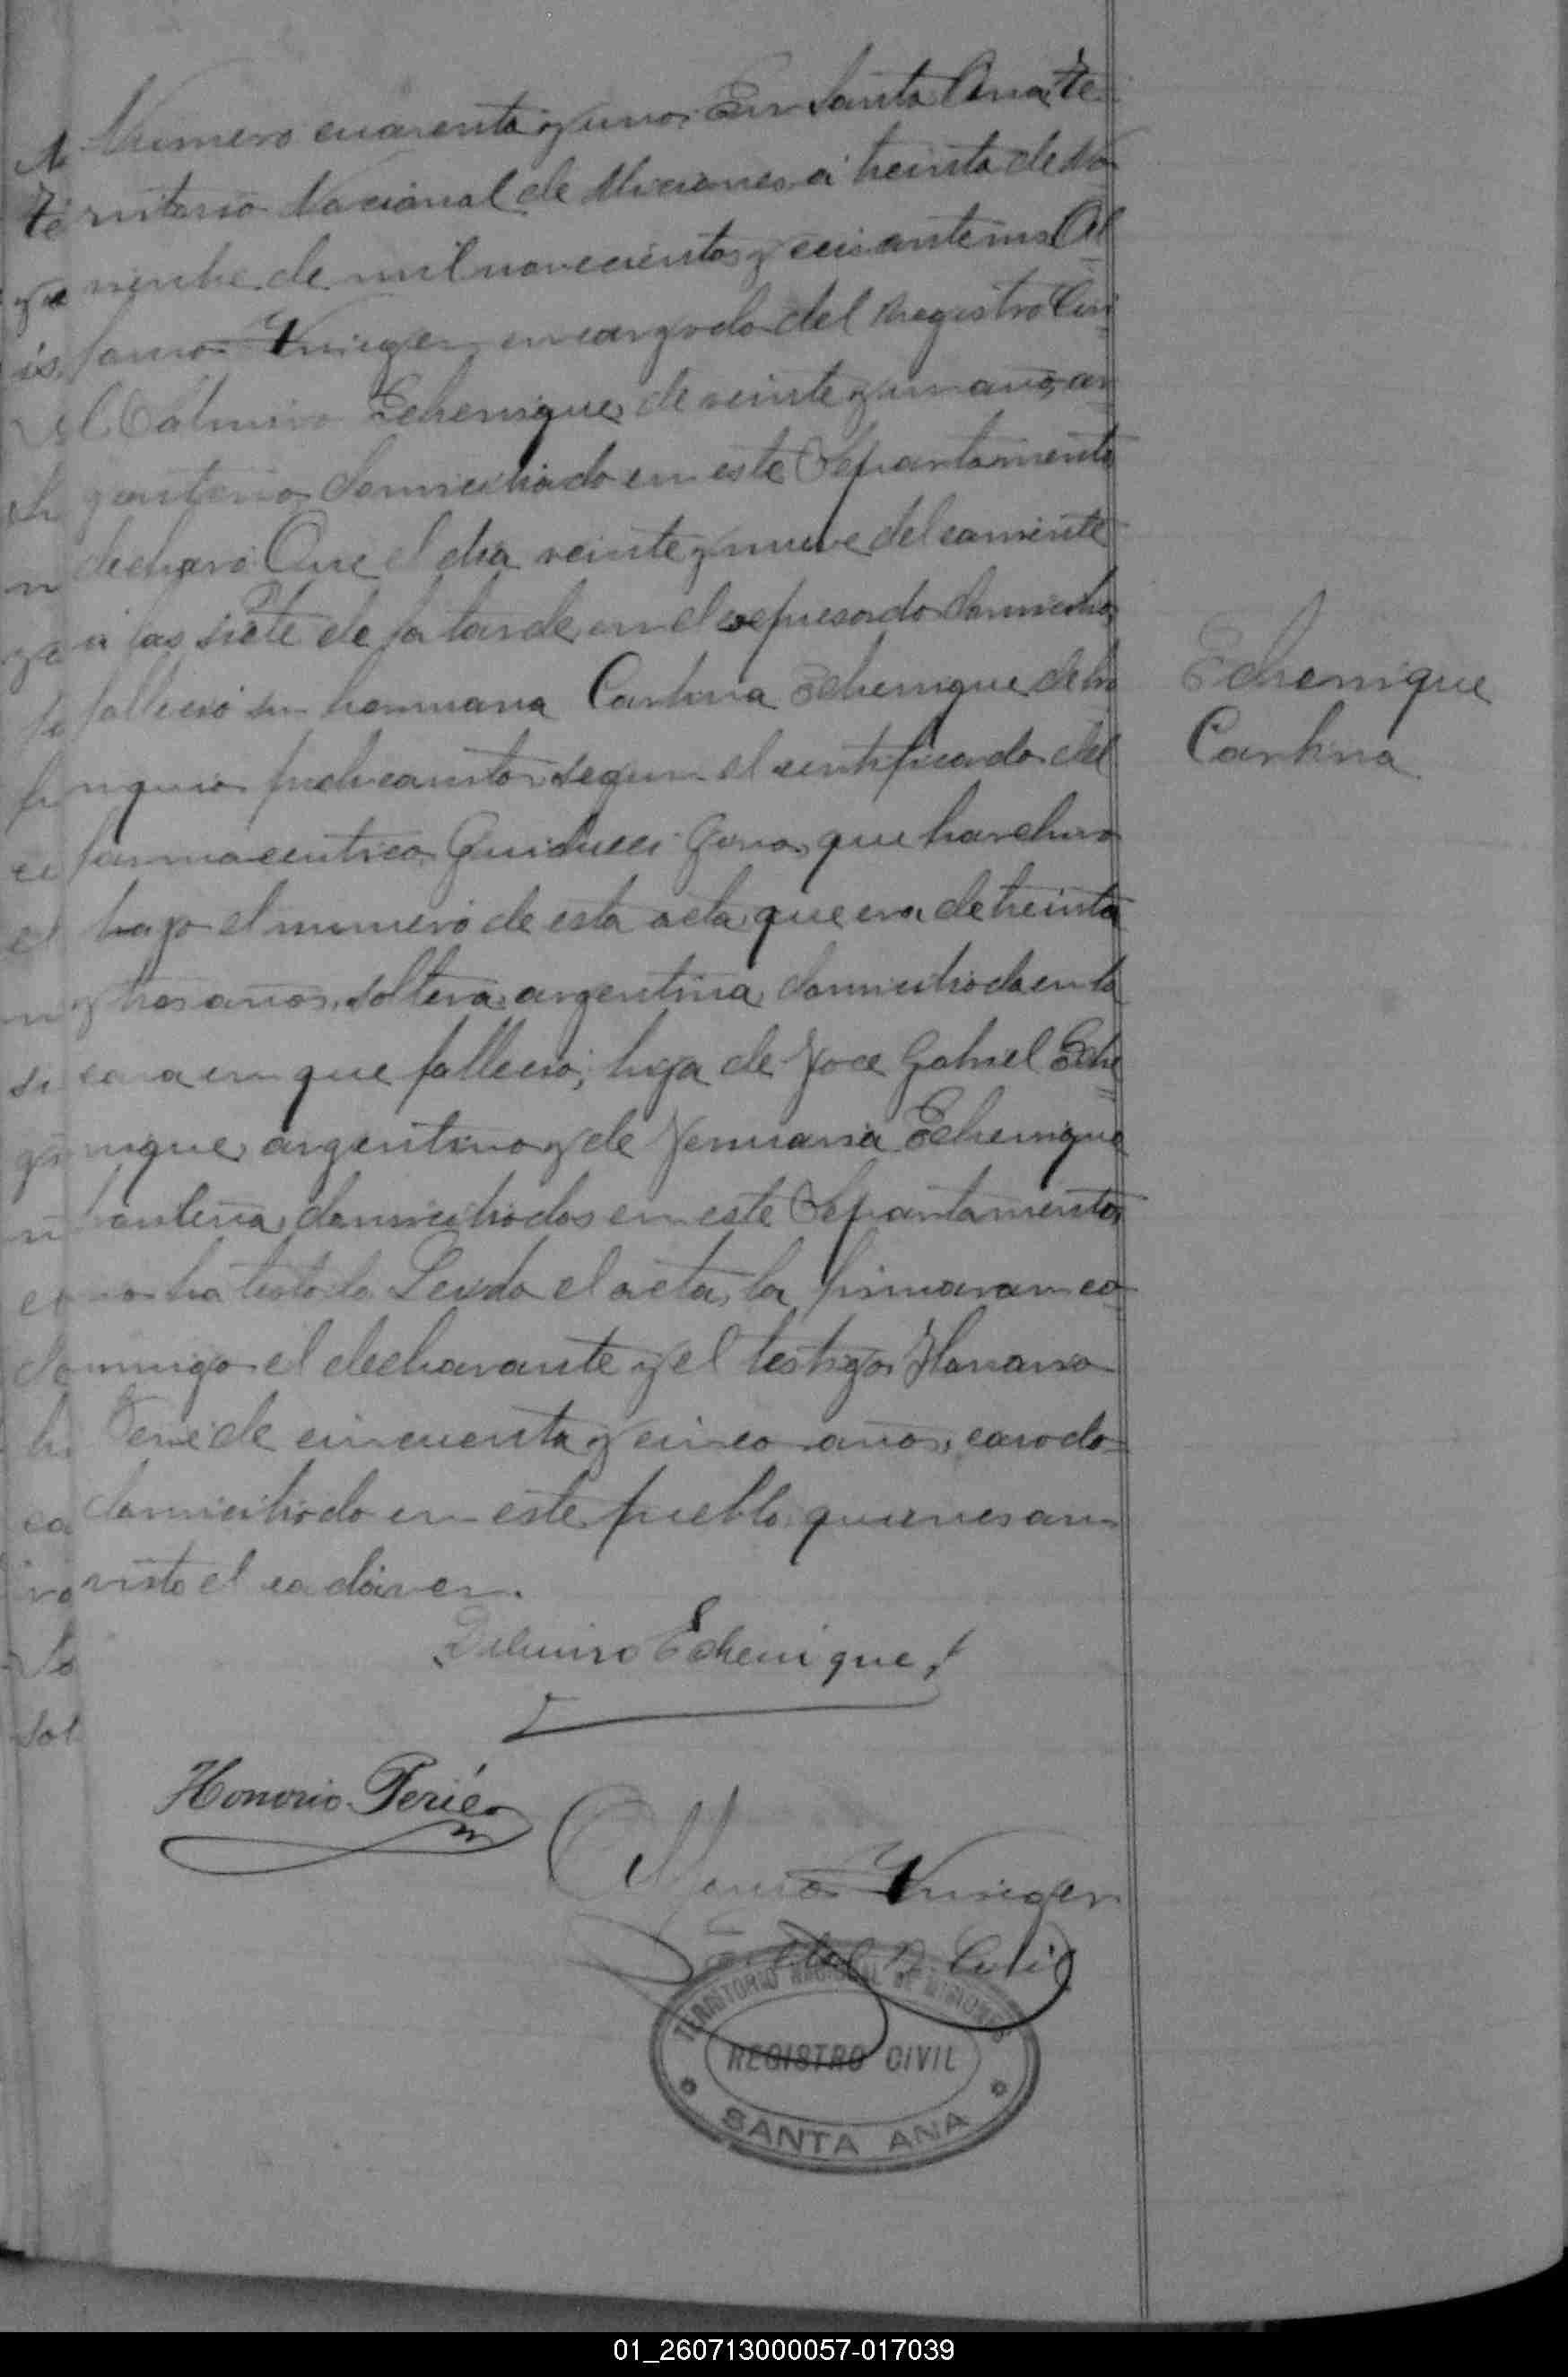 Numero cuarenta y uno. En Santa Ana, Te
rritorio Nacional de Miciones, á treinta de No
viembre de mil novecientos y seis ante mi Al
Krieger encargado del Registro Civi
l, Dalmiro Echenique, de veinte y un año, ar
gentino, domiciliado en este Departamento
declaro: Que el dia veinte y nueve del corriente
á las siete de la tarde, en el expresado domicilio
fallecio su hermana Carlina Echenique, de
segun el certificado del
farmaceutico, Guiducci que harchivo
bajo el numero de esta acta, que era de treinta
y tres años, soltera, argentina, domiciliada en la
casa en que fallecio; hija de Jose Gabriel Eche
nique, argentino, y de Jenuaria Echenique
domiciliados en este Departamento,
no ha testado. Leida el acta, la firmaran co
nmigo el declarante y el testigo, Honorio
Perié de cincuenta y cinco años, casado
domiciliado en este pueblo, quienes an
visto el cadáver.
Echenique
Carlina
Dalmiro Echenique
Honorio Perié
Krieger
TERRITORIO NACIONAL DE MISIONES
REGISTRO CIVIL
SANTA ANA
01_260713000057-017039